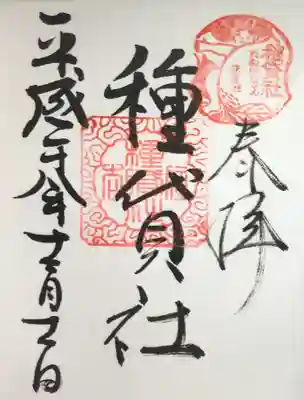 奉拝
種貸社
平成二十八年十二月 日